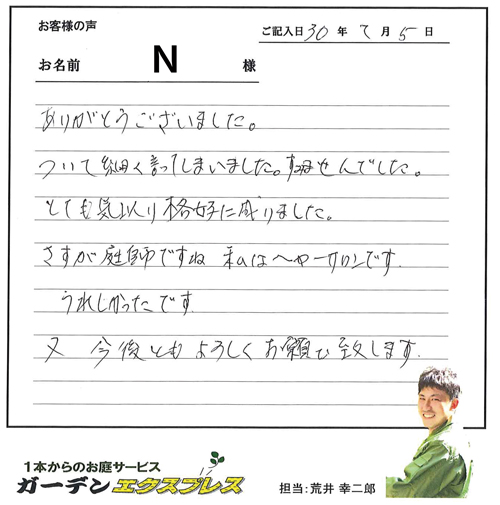 お客様の声
ご記入日 30 年 7 月 5 日
お名前 N 様
ありがとうございました。
ついて細く言ってしまいました。すみませんでした。
とても気に入り格好に成りました。
さすが庭師ですね 私はヘヤーサロンです.
うれしかったです
又 今後ともよろしくお願い致します.
1本からのお庭サービス
ガーデンエクスプレス
担当:荒井 幸二郎